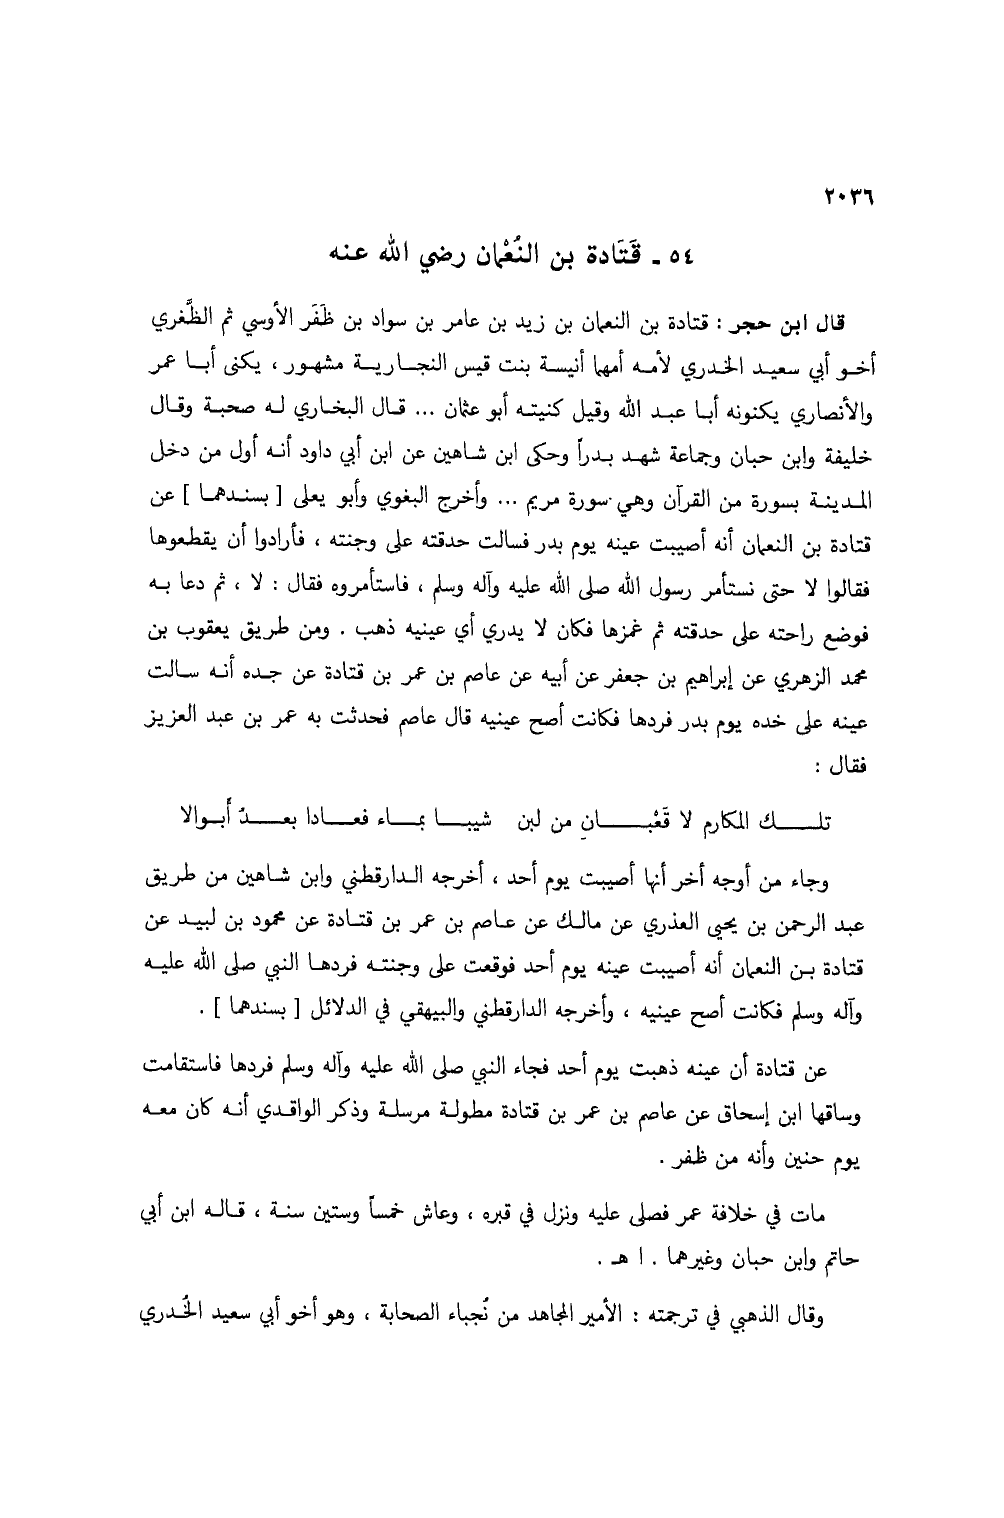 ٢٠٣٦
٥٤ - قَتَادة بن النُعْمان رضي الله عنه
قال ابن حجر : قتادة بن النعمان بن زيد بن عامر بن سواد بن ظَفَر الأوسي ثم الظَّفري
أخو أبي سعيد الخدري لأمه أمها أنيسة بنت قيس النجارية مشهور ، يكنى أبا عمر
والأنصاري يكنونه أبا عبد الله وقيل كنيته أبو عثمان ... قال البخاري له صحبة وقال
خليفة وابن حبان وجماعة شهد بدراً وحكى ابن شاهين عن ابن أبي داود أنه أول من دخل
المدينة بسورة من القرآن وهي سورة مريم ... وأخرج البغوي وأبو يعلى [ بسندهما ] عن
قتادة بن النعمان أنه أصيبت عينه يوم بدر فسالت حدقته على وجنته ، فأرادوا أن يقطعوها
فقالوا لا حتى نستأمر رسول الله صلى الله عليه وآله وسلم ، فاستأمروه فقال : لا ، ثم دعا به
فوضع راحته على حدقته ثم غمزها فكان لا يدري أي عينيه ذهب . ومن طريق يعقوب بن
محمد الزهري عن إبراهيم بن جعفر عن أبيه عن عاصم بن عمر بن قتادة عن جده أنه سالت
عينه على خده يوم بدر فردها فكانت أصح عينيه قال عاصم فحدثت به عمر بن عبد العزيز
فقال :
تلك المكارم لا قَعْبانِ من لبن شيبا بماء فعادا بعدُ أبوالا
وجاء من أوجه أخر أنها أصيبت يوم أحد ، أخرجه الدارقطني وابن شاهين من طريق
عبد الرحمن بن يحيى العذري عن مالك عن عاصم بن عمر بن قتادة عن محمود بن لبيد عن
قتادة بن النعمان أنه أصيبت عينه يوم أحد فوقعت على وجنته فردها النبي صلى الله عليه
وآله وسلم فكانت أصح عينيه ، وأخرجه الدارقطني والبيهقي في الدلائل [ بسندهما ] .
عن قتادة أن عينه ذهبت يوم أحد فجاء النبي صلى الله عليه وآله وسلم فردها فاستقامت
وساقها ابن إسحاق عن عاصم بن عمر بن قتادة مطولة مرسلة وذكر الواقدي أنه كان معه
يوم حنين وأنه من ظفر .
مات في خلافة عمر فصلى عليه ونزل في قبره ، وعاش خمساً وستين سنة ، قاله ابن أبي
حاتم وابن حبان وغيرهما . ا هـ .
وقال الذهبي في ترجمته : الأمير المجاهد من نُجباء الصحابة ، وهو أخو أبي سعيد الخُدري